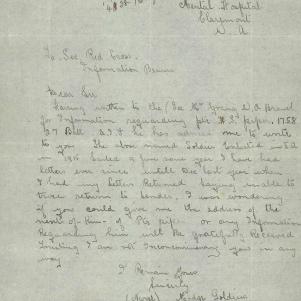 Mental Hospital
Claremont
W. A
To Sec Red Cross
Information Bureau
Dear Sir
Having written to the Sec W. A Branch
for Information reguarding pte piper. 1758
27 Batt A. I. F he has advised me to write
to you The above named Soldier Enlisted
in 1915 Sailed I have had
letters ever since untill Dec last year when
I had my letters Returned saying unable to
trace return to sender. I was wondering
if you could give me the address of the
next-of-Kin of Pte piper or any Information
Reguarding him will be gratefully Received
Trusting I am not Inconveniencing you in any
way
I Remain Yours
Sincerely
(Nurse) Madge